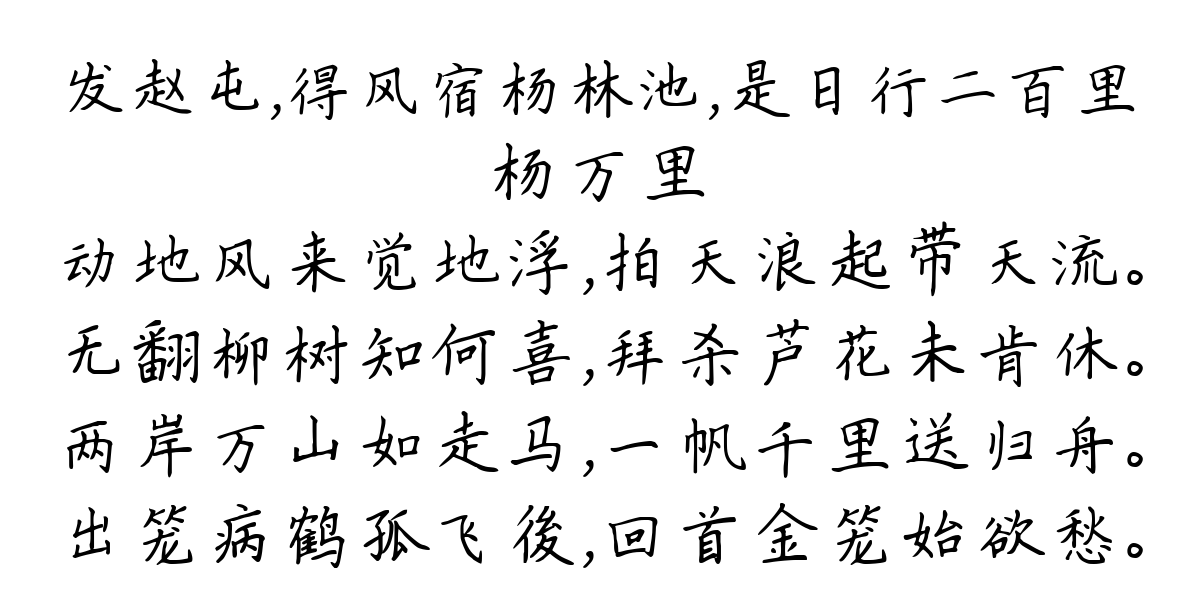 发赵屯,得风宿杨林池,是日行二百里
杨万里
动地风来觉地浮,拍天浪起带天流。
无翻柳树知何喜,拜杀芦花未肯休。
两岸万山如走马,一帆千里送归舟。
出笼病鹤孤飞後,回首金笼始欲愁。